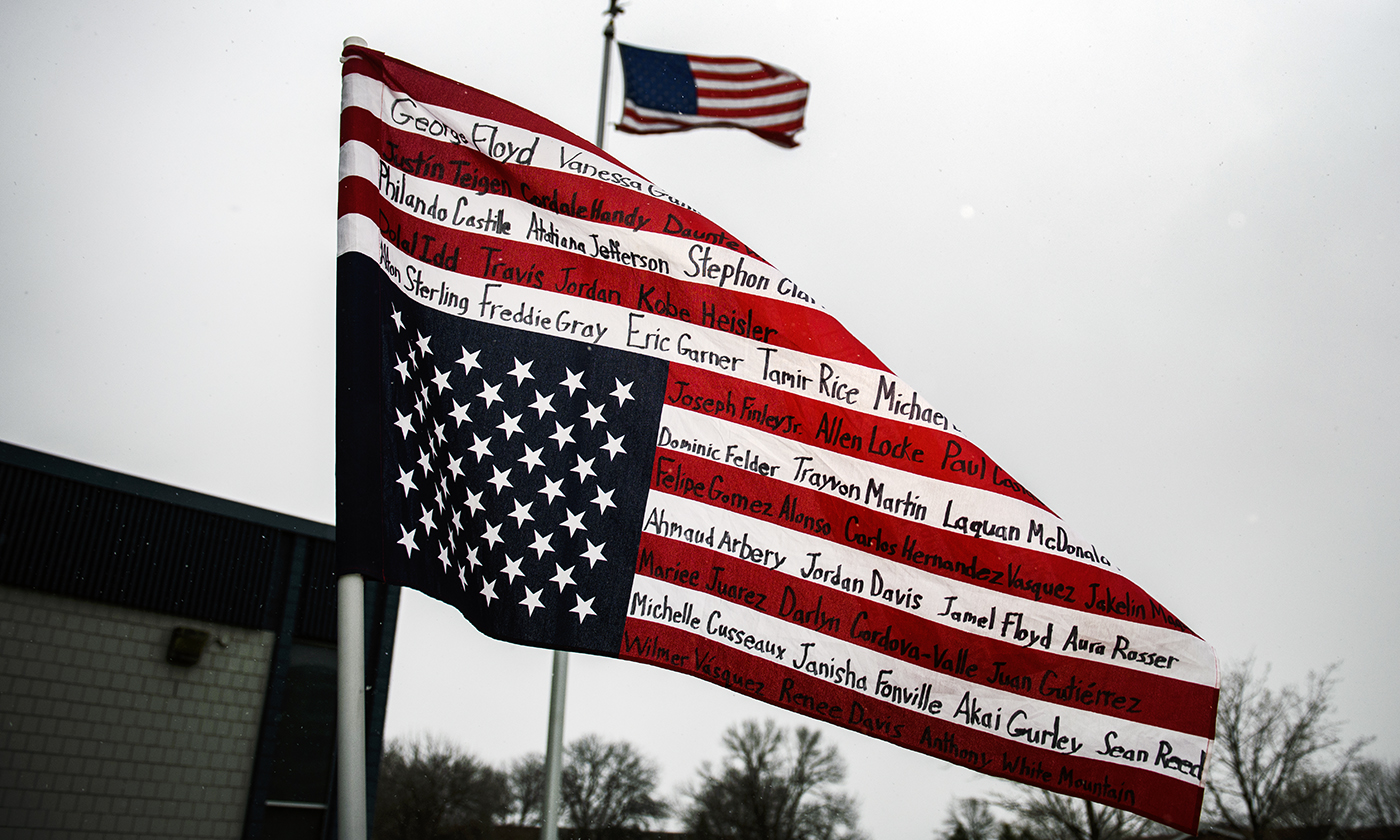 George Floyd Vanessa
Justin Teigen Cordale Handy Daunte
Philando Castille Atatiana Jefferson Stephon
Dolal Idd Travis Jordan Kobe Heisler
Alton Sterling Freddie Gray Eric Garner Tamir Rice Michael
Joseph Finley Jr. Allen Locke Paul
Dominic Felder Trayvon Martin Laquan McDonald
Felipe Gomez Alonso Carlos Hernandez Vasquez Jakelin
Ahmaud Arbery Jordan Davis Jamel Floyd Aura Rosser
Mariee Juarez Darlyn Cordova-Valle Juan Gutiérrez
Michelle Cusseaux Janisha Fonville Akai Gurley Sean Reed
Wilmer Vásquez Renee Davis Anthony White Mountain